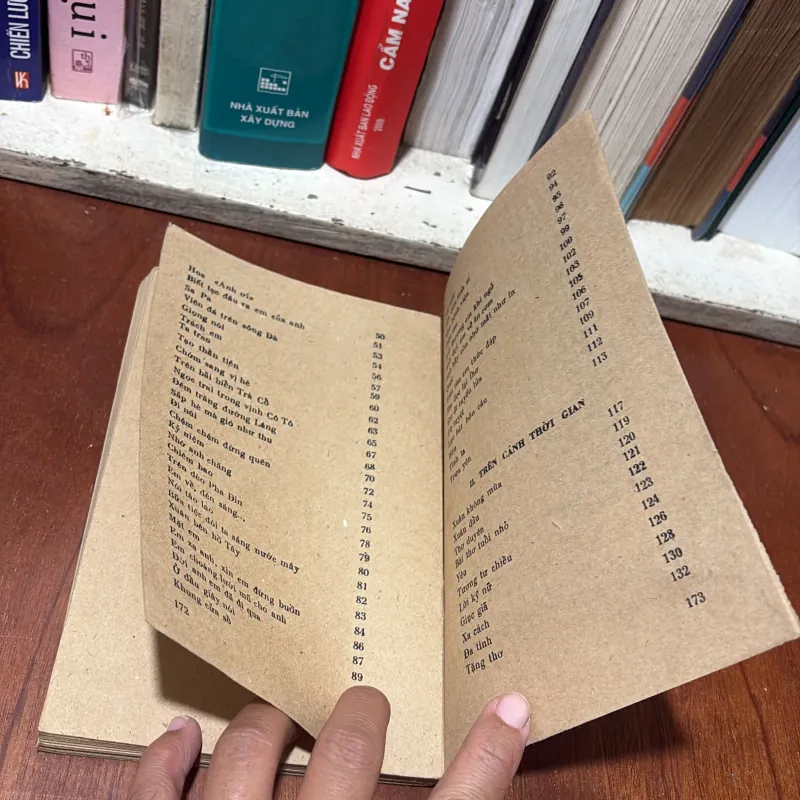 CHIẾN LƯỢ
ụi
NHÀ XUẤT BẢN
XÂY DỰNG
CẨM NA
NHÀ XUẤT BẢN LAO ĐỘNG
2005
Hoa «Anh ơi»
Biết tạo đâu ra em của anh 50
Sa Pa 51
Viên đá trên sông Đà 53
Giọng nói 54
Trách em 56
Ta trao 57
Tạo thần tiên 59
Chớm sang vị hè 60
Trên bãi biển Trà Cổ 62
Ngọc trai trong vịnh Cô Tô 63
Đêm trăng đường Láng 65
Sắp hè mà gió như thu 67
Đi núi 68
Chầm chậm đừng quên 70
Kỷ niệm 72
Nhớ anh chăng 74
Chiêm bao 75
Trên đèo Pha Đin 76
Em về, đón sáng... 78
Nói tào lao 79
Bữa tiệc đòi ta sáng nước mây 80
Xuân bên hồ Tây 81
Mặt em 82
Em xa anh, xin em đừng buồn 83
Em choàng mũ cho anh 84
Đợi anh em đã đi qua 86
Ở đầu giây nói 87
Khung cửa sổ 89
172
92
94
95
96
97
99
100
102
103
105
106
107
109
111
112
113
II. TRÊN CÁNH THỜI GIAN
Xuân không mùa 117
Xuân đầu 119
Thơ duyên 120
Bài thơ tuổi nhỏ 121
Yêu 122
Tương tư chiều 123
Lời kỹ nữ 124
Giục giã 126
Xa cách 128
Đa tình 130
Tặng thơ 132
173